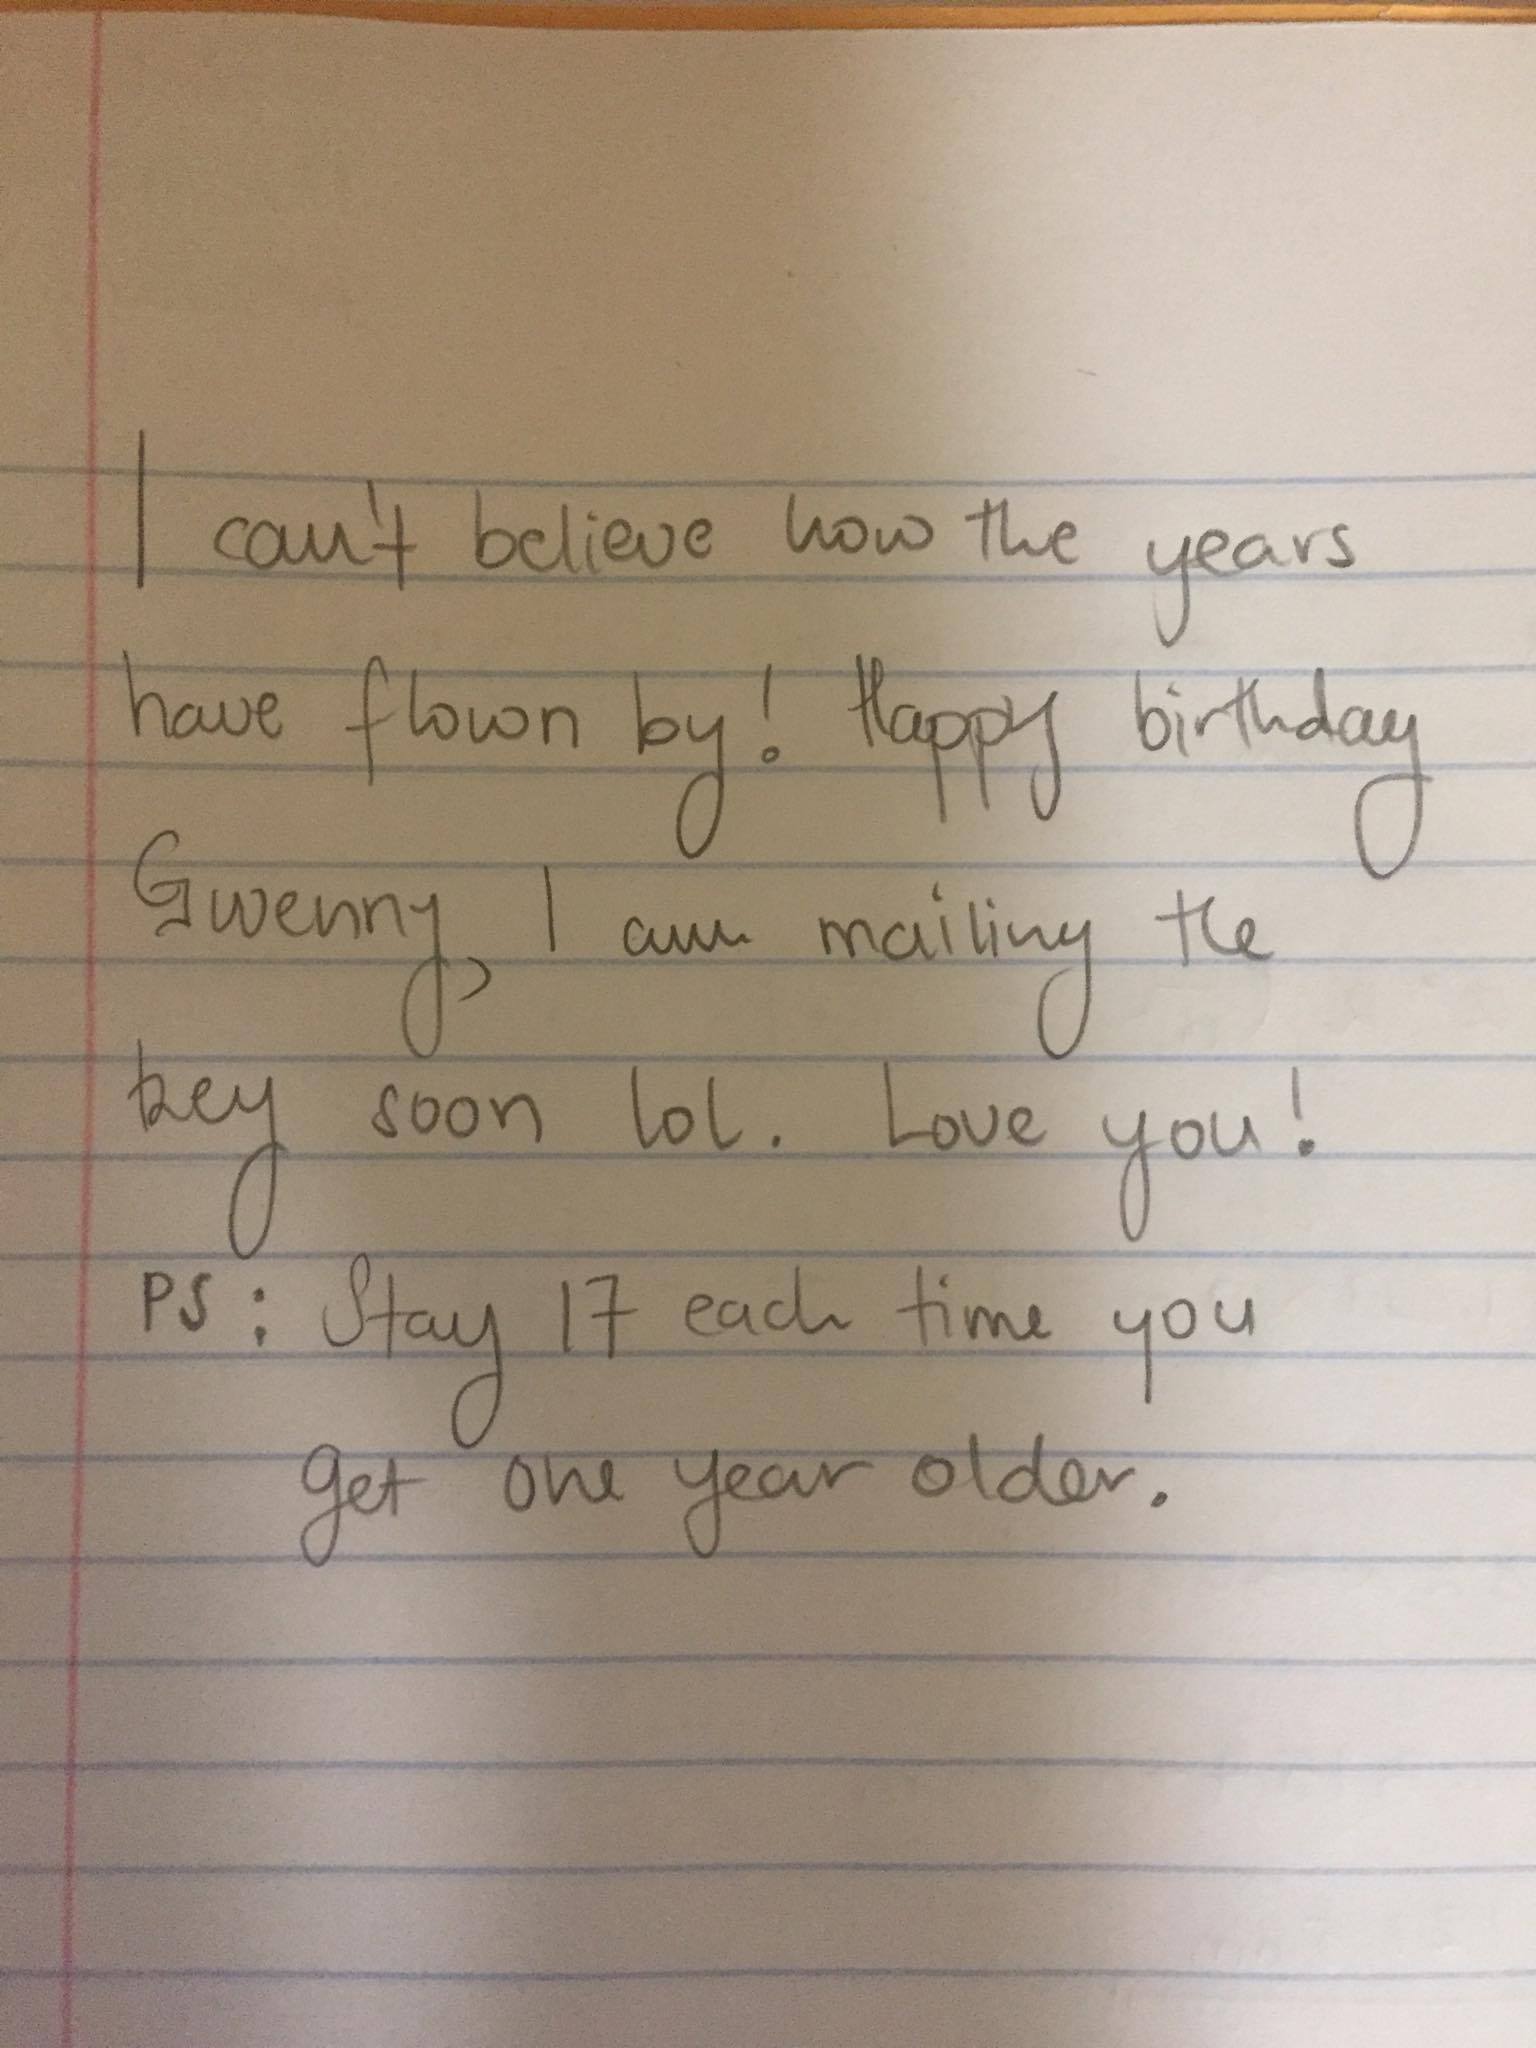 I can't believe how the years
have flown by! Happy birthday
Gwenny, I am mailing the
key soon lol. Love you!
PS: Stay 17 each time you
get one year older.